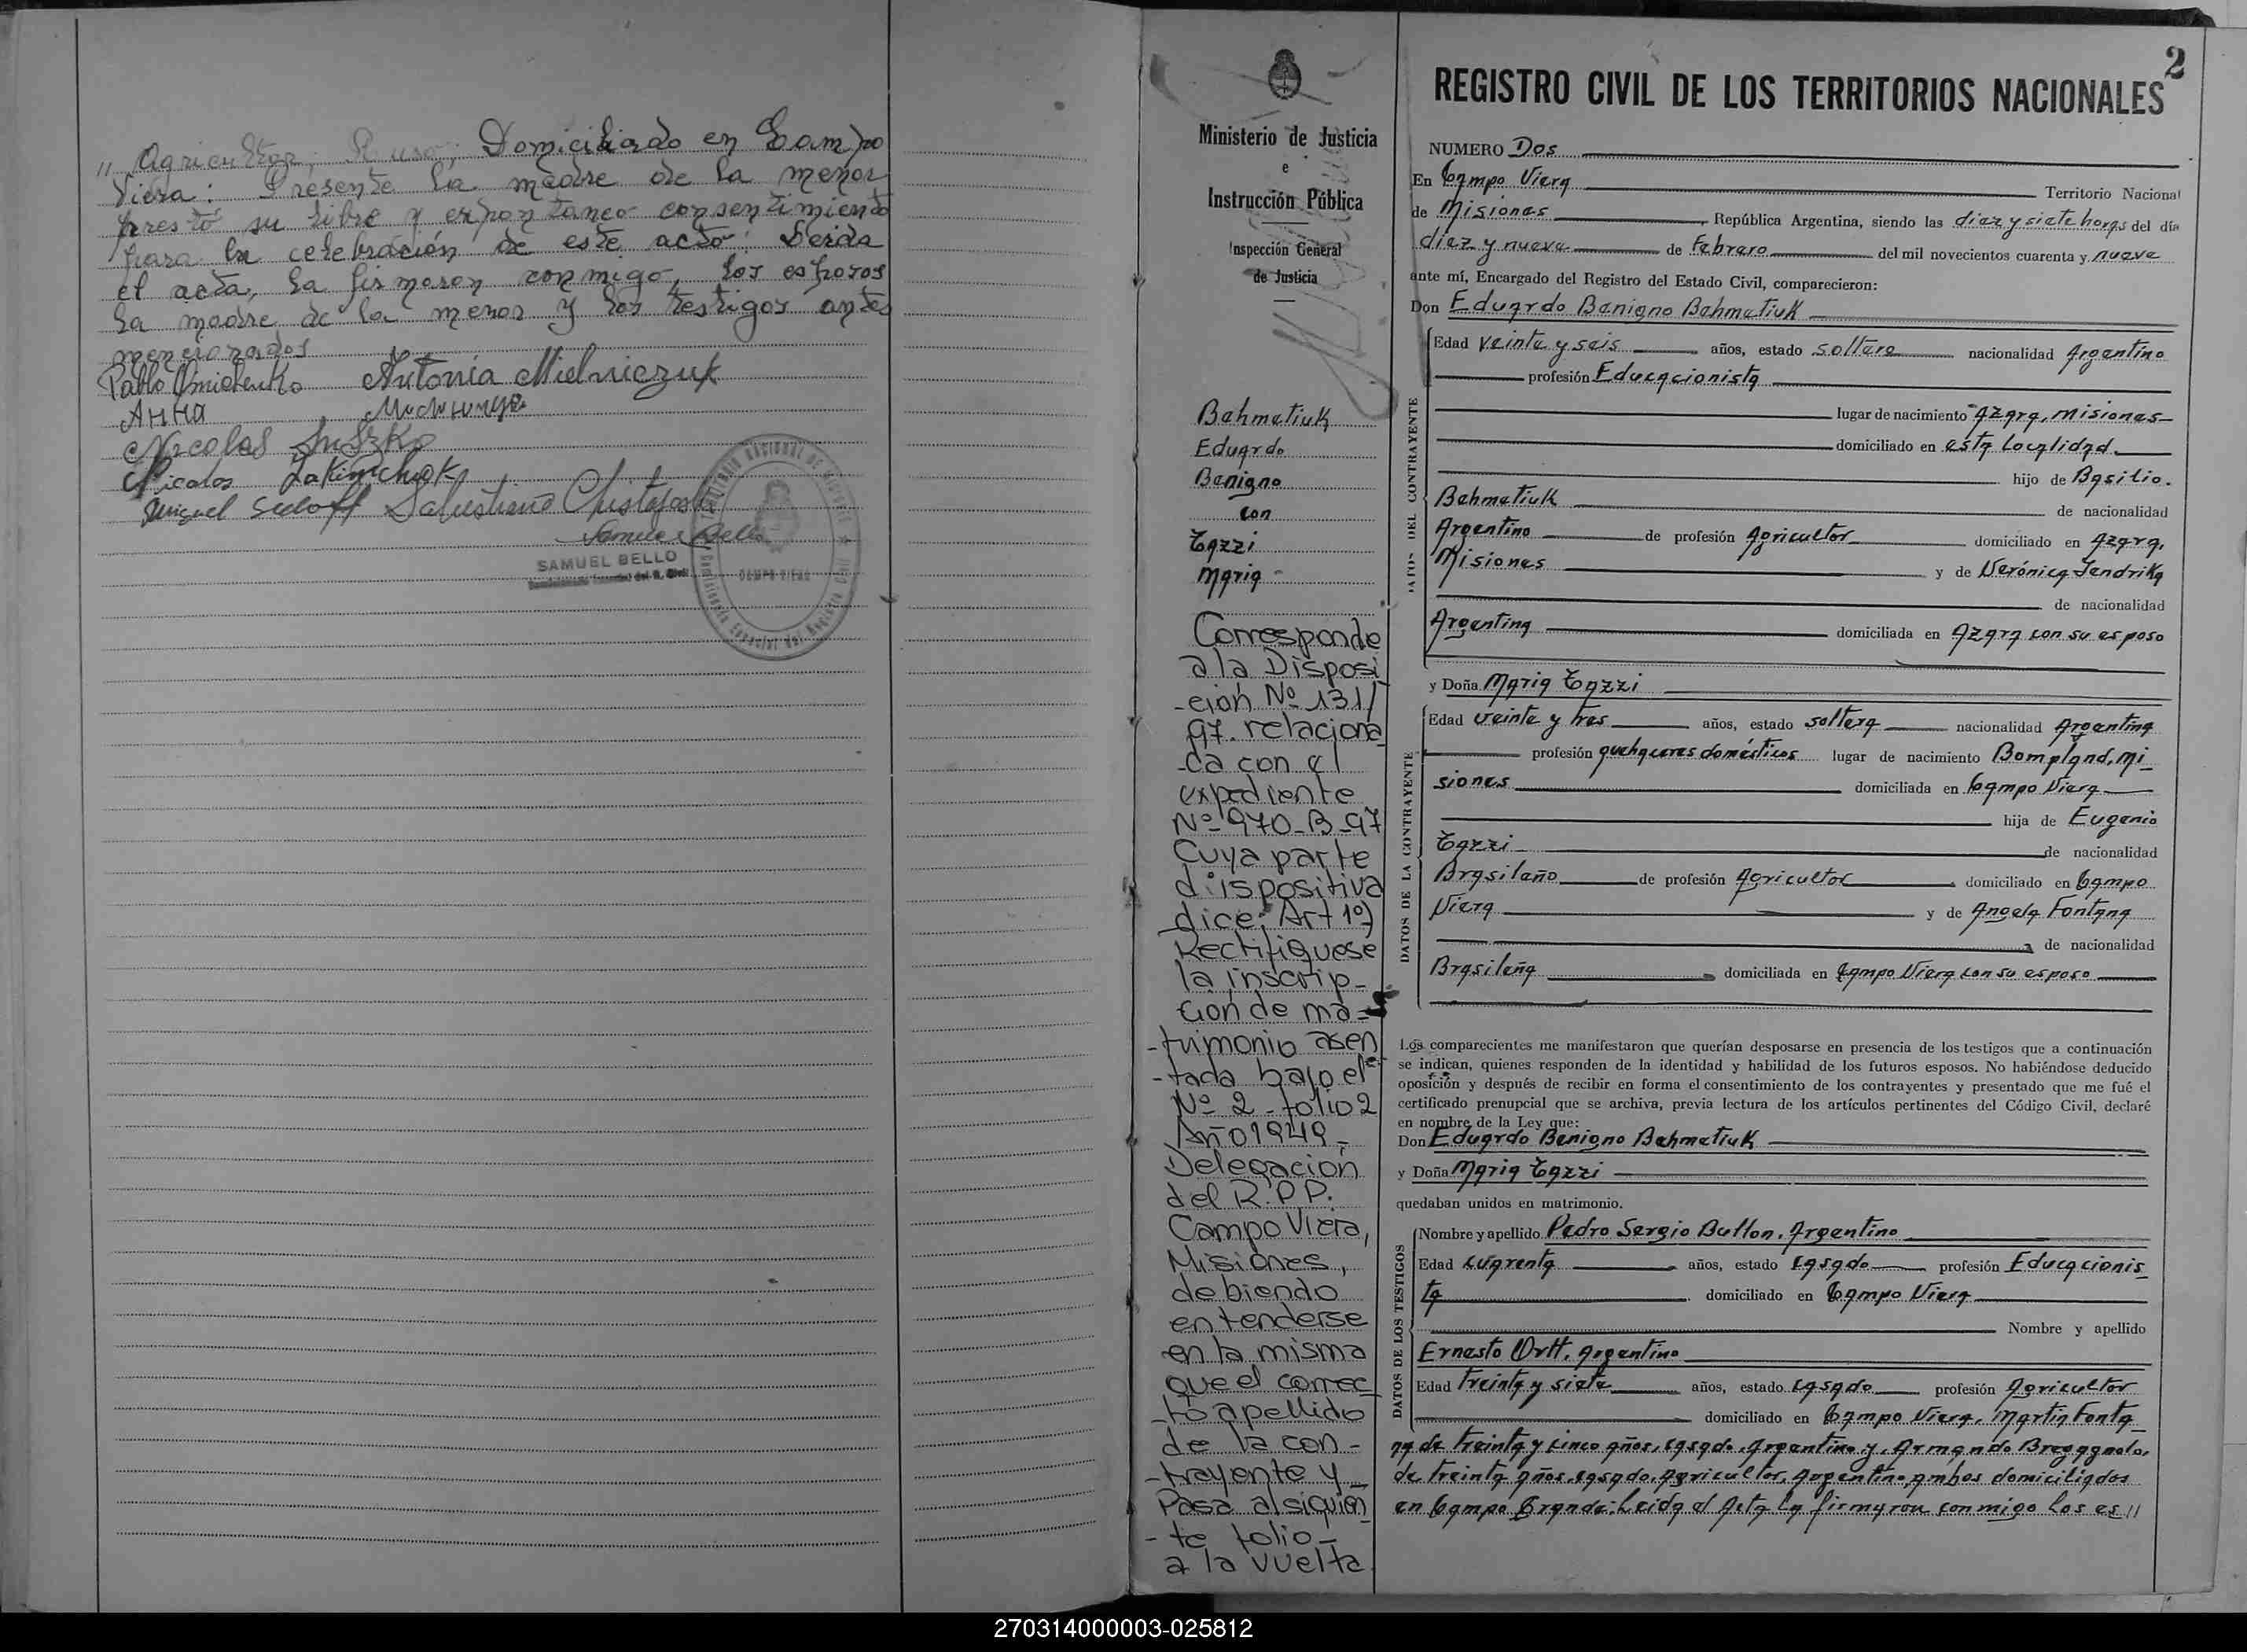 " Agricultor; Ruso; Domiciliado en Campo
Viera: Presente la madre de la menor
prestó su libre y expontaneo consentimiento
para la celebración de este acto: Leida
el acta, la firmaron conmigo, los esposos
la madre de la menor y los testigos antes
mencionados
Pablo Omichenko Antonia Mielniczuk
АННА
Nicolas
Nicolas Jakimchuk
Miguel
Samuel Bello
SAMUEL BELLO
CAMPO VIERA
2
Ministerio de Justicia
e
Instrucción Pública
Inspección General
de Justicia
Bahmatiuk
Eduardo
Benigno
con
Tazzi
Maria
Corresponde
a la Disposi
-ción Nº 131/
97. relaciona
-da con el
expediente
Nº 970-B-97
Cuya parte
dispositiva
dice: Art 1º)
Rectifiquese
la inscrip-
ción de ma-
-trimonio asen
-tada bajo el
Nº 2 - folio 2
Año 1949 -
Delegación
del R.P.P.
Campo Viera,
Misiones,
debiendo
entenderse
en la misma
que el correc
-to apellido
de la con-
-trayente y
Pasa al siguien
-te folio-
a la vuelta
REGISTRO CIVIL DE LOS TERRITORIOS NACIONALES
NUMERO Dos
En Campo Viera Territorio Nacional
de Misiones, República Argentina, siendo las diez y siete horas del día
diez y nueve de Febrero del mil novecientos cuarenta y nueve
ante mí, Encargado del Registro del Estado Civil, comparecieron:
Don Eduardo Benigno Bahmatiuk
DATOS DEL CONTRAYENTE
Edad veinte y seis años, estado soltero nacionalidad Argentino
profesión Educacionista
lugar de nacimiento Azara, Misiones
domiciliado en esta Localidad.
hijo de Basilio.
Bahmatiuk de nacionalidad
Argentino de profesión Agricultor domiciliado en Azara,
Misiones y de Verónica Jendrika
de nacionalidad
Argentina domiciliada en Azara con su esposo
y Doña Maria Tazzi
DATOS DE LA CONTRAYENTE
Edad veinte y tres años, estado soltera nacionalidad Argentina
profesión quehaceres domésticos lugar de nacimiento Bompland, Mi
siones domiciliada en Campo Viera
hija de Eugenio
Tazzi de nacionalidad
Brasilaño de profesión Agricultor domiciliado en Campo
Viera y de Angela Fontana
de nacionalidad
Brasileña domiciliada en Campo Viera con su esposo
Los comparecientes me manifestaron que querían desposarse en presencia de los testigos que a continuación
se indican, quienes responden de la identidad y habilidad de los futuros esposos. No habiéndose deducido
oposición y después de recibir en forma el consentimiento de los contrayentes y presentado que me fué el
certificado prenupcial que se archiva, previa lectura de los artículos pertinentes del Código Civil, declaré
en nombre de la Ley que:
Don Eduardo Benigno Bahmatiuk
y Doña Maria Tazzi
quedaban unidos en matrimonio.
DATOS DE LOS TESTIGOS
Nombre y apellido Pedro Sergio Bullon, Argentino
Edad cuarenta años, estado casado profesión Educacionis
ta domiciliado en Campo Viera
Nombre y apellido
Ernesto Ortt, argentino
Edad treinta y siete años, estado casado profesión Agricultor
domiciliado en Campo Viera, Martin Fonta
na de treinta y cinco años, casado, Argentino y, Armando Bregagnolo,
de treinta años, casado, Agricultor, Argentino, ambos domiciliados
en Campo Grande: Leida el Acta la firmaron conmigo los es //
270314000003-025812